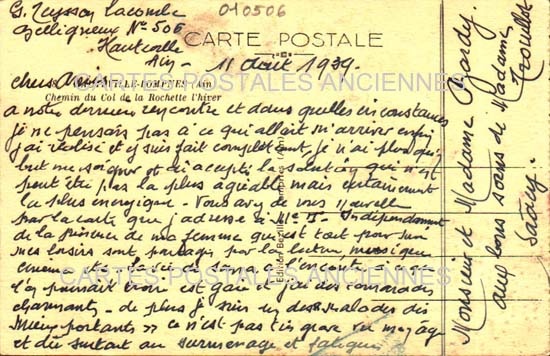 G. Teysson Lacombe
Belligneux N° 506
Hauteville
Ain -
010506
CARTE POSTALE
11 Août 1939.
chers Amis
HAUTEVILLE-LOMPNES (Ain)
Chemin du Col de la Rochette l'hiver
CARTES POSTALES ANCIENNES
a notre dernière rencontre et dans quelles circonstances
je ne pensais pas à ce qui allait m'arriver enfin
j'ai réalisé et j'y suis fait complètement, je n'ai plus qu'un
but me soigner et j'ai accepté la solution qui n'est
peut être pas la plus agréable mais certainement
la plus énergique - Vous avez de mes nouvelles
par la carte que j'adresse à Mr T- Indépendamment
de la présence de ma femme qui est tout pour moi
mes loisirs sont partagés par la lecture, musique
cinéma
CARTES POSTALES ANCIENNES
l'on pourrait croire est gai et j'ai des camarades
charmants - de plus je suis un des malades dits
"mieux portants" ce n'est pas très grave
et du surtout au surmenage et fatigue
Monsieur et Madame
aux bons soins de Madame
Trouillot